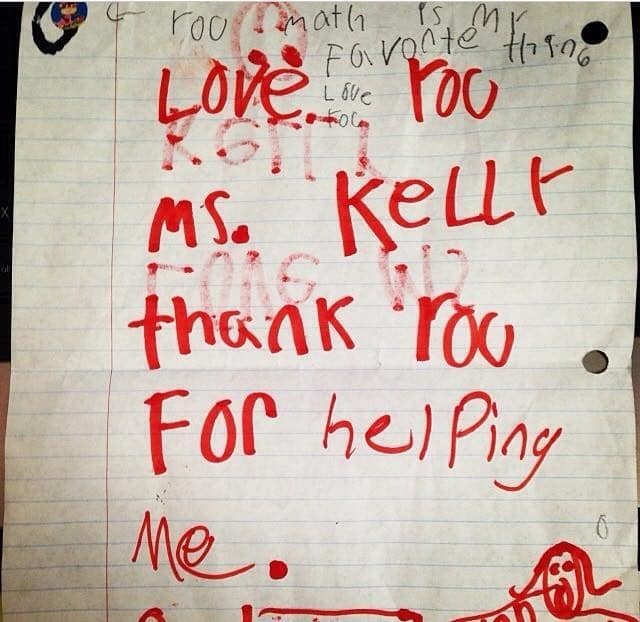 roo math is My
Favorite thing
Love roo
Love
roo
Ms. Kelly
thank roo
For helping
Me.